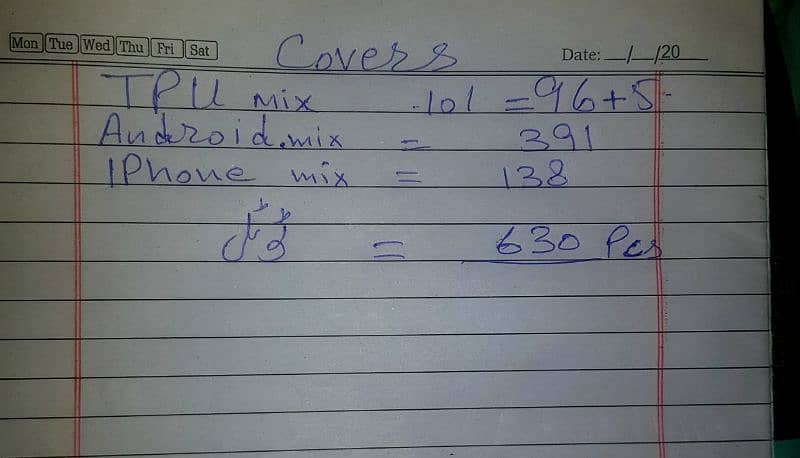 Mon Tue Wed Thu Fri Sat
Covers
Date: __/__/20__
TPU mix .101 = 96+5
Android.mix = 391
IPhone mix = 138
ٹوٹل = 630 Pcs